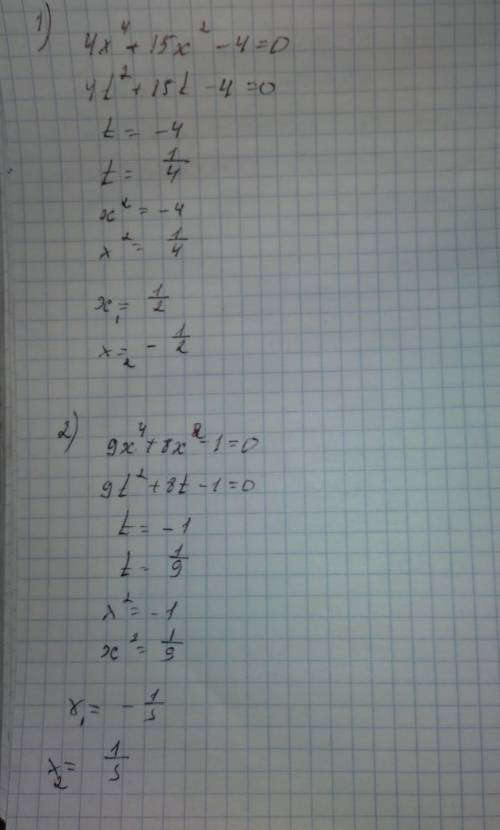 1)
4x⁴ + 15x² - 4 = 0
4t² + 15t - 4 = 0
t = -4
t = 1/4
x² = -4
x² = 1/4
x₁ = 1/2
x₂ = - 1/2
2)
9x⁴ + 8x² - 1 = 0
9t² + 8t - 1 = 0
t = -1
t = 1/9
x² = -1
x² = 1/9
x₁ = - 1/3
x₂ = 1/3